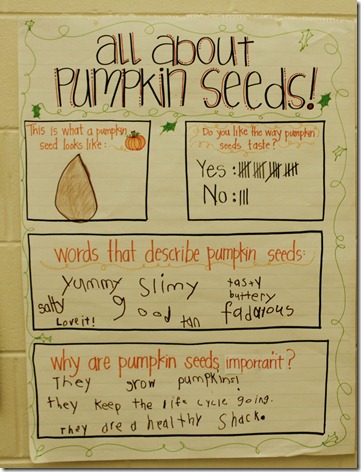 all about
PUMPKIN SEEDS!
This is what a pumpkin
seed looks like:
Do you like the way pumpkin
seeds taste?
Yes :
No :
words that describe pumpkin seeds:
yummy slimy tasty
buttery
salty good fadqious
Love it! tan
why are pumpkin seeds important?
They grow pumpkins!
they keep the life cycle going.
They are a healthy shack.